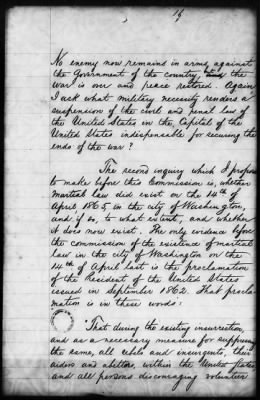 16
No enemy now remains in arms against
the Government of the country, and the
war is over and peace restored. Again
I ask what military necessity renders a
suspension of the civil and penal law of
the United States in the Capital of the
United States indispensable for securing the
ends of the war?
The second inquiry which I propose
to make before this Commission is, whether
martial law did exist on the 14th of
April 1865 in the city of Washington,
and if so, to what extent, and whether
it does now exist. The only evidence before
the commission of the existence of martial
law in the city of Washington on the
14th of April last is the proclamation
of the President of the United States
issued in September 1862. That procla-
mation is in these words:
"That during the existing insurrection,
and as a necessary measure for suppressing
the same, all rebels and insurgents, their
aiders and abettors, within the United States,
and all persons discouraging volunteer